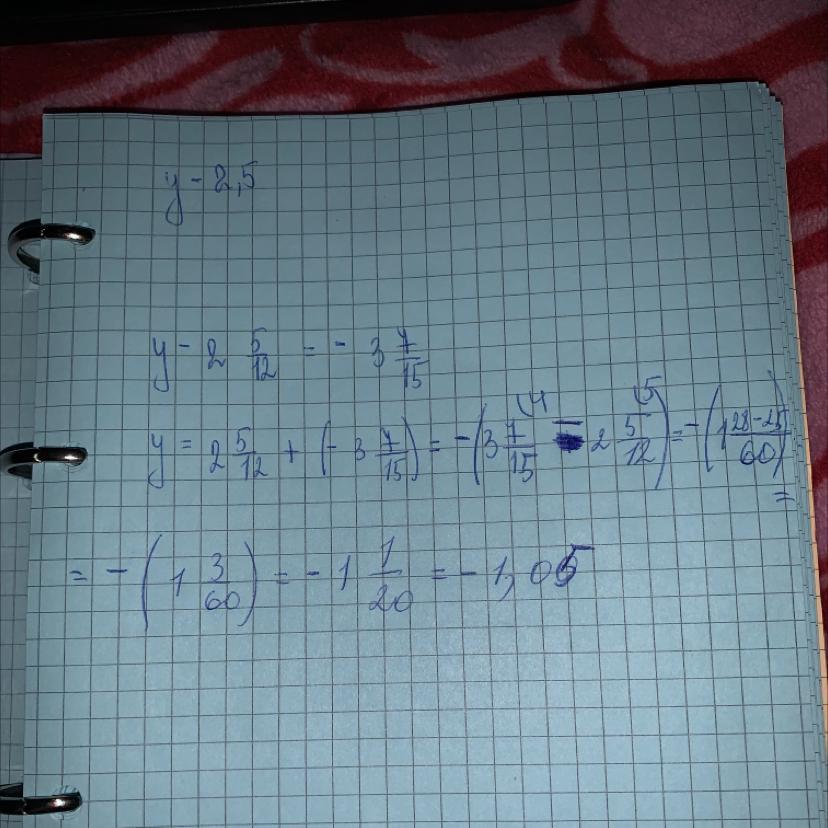 y - 2,5
y - 2 5/12 = - 3 7/15
y = 2 5/12 + (- 3 7/15) = - (3 7/15 (4 - 2 5/12 (5) = - (1 28-25/60) =
= - (1 3/60) = - 1 1/20 = - 1,05